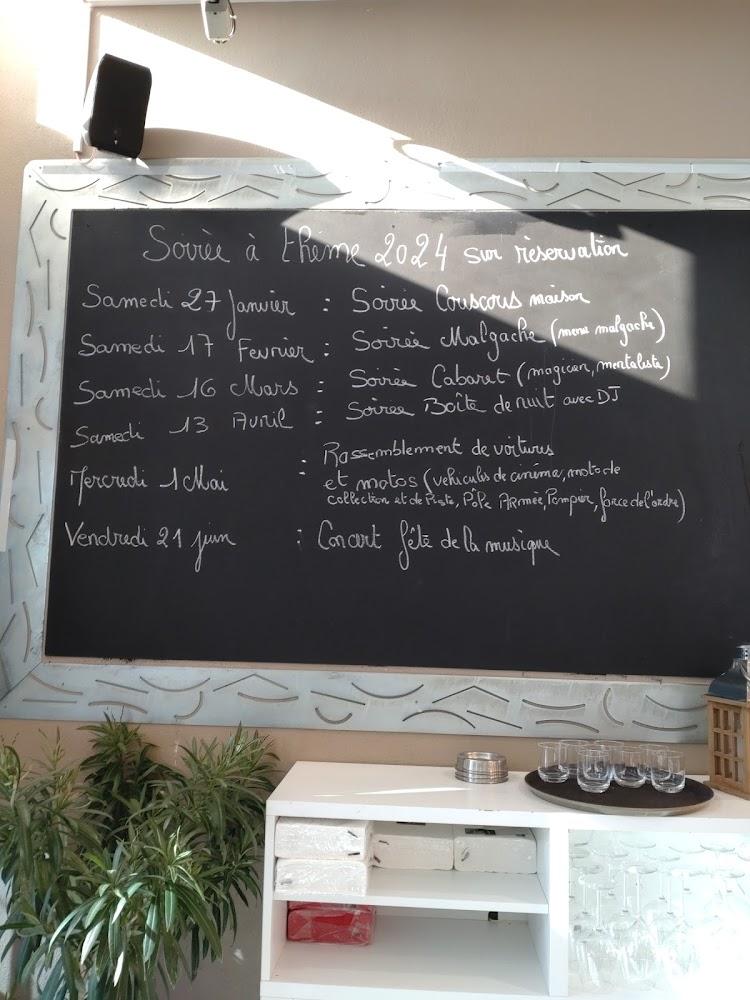 Soirée à thème 2024 sur réservation
Samedi 27 Janvier : Soirée Couscous maison
Samedi 17 Fevrier : Soirée Malgache (menu malgache)
Samedi 16 Mars : Soirée Cabaret (magicien, mentaliste)
Samedi 13 Avril : Soirée Boîte de nuit avec DJ
Mercredi 1 Mai : Rassemblement de voitures
et motos (vehicules de cinéma, moto de
collection et de Piste, Pôle Armée, Pompier, force de l'ordre)
Vendredi 21 juin : Concert fête de la musique